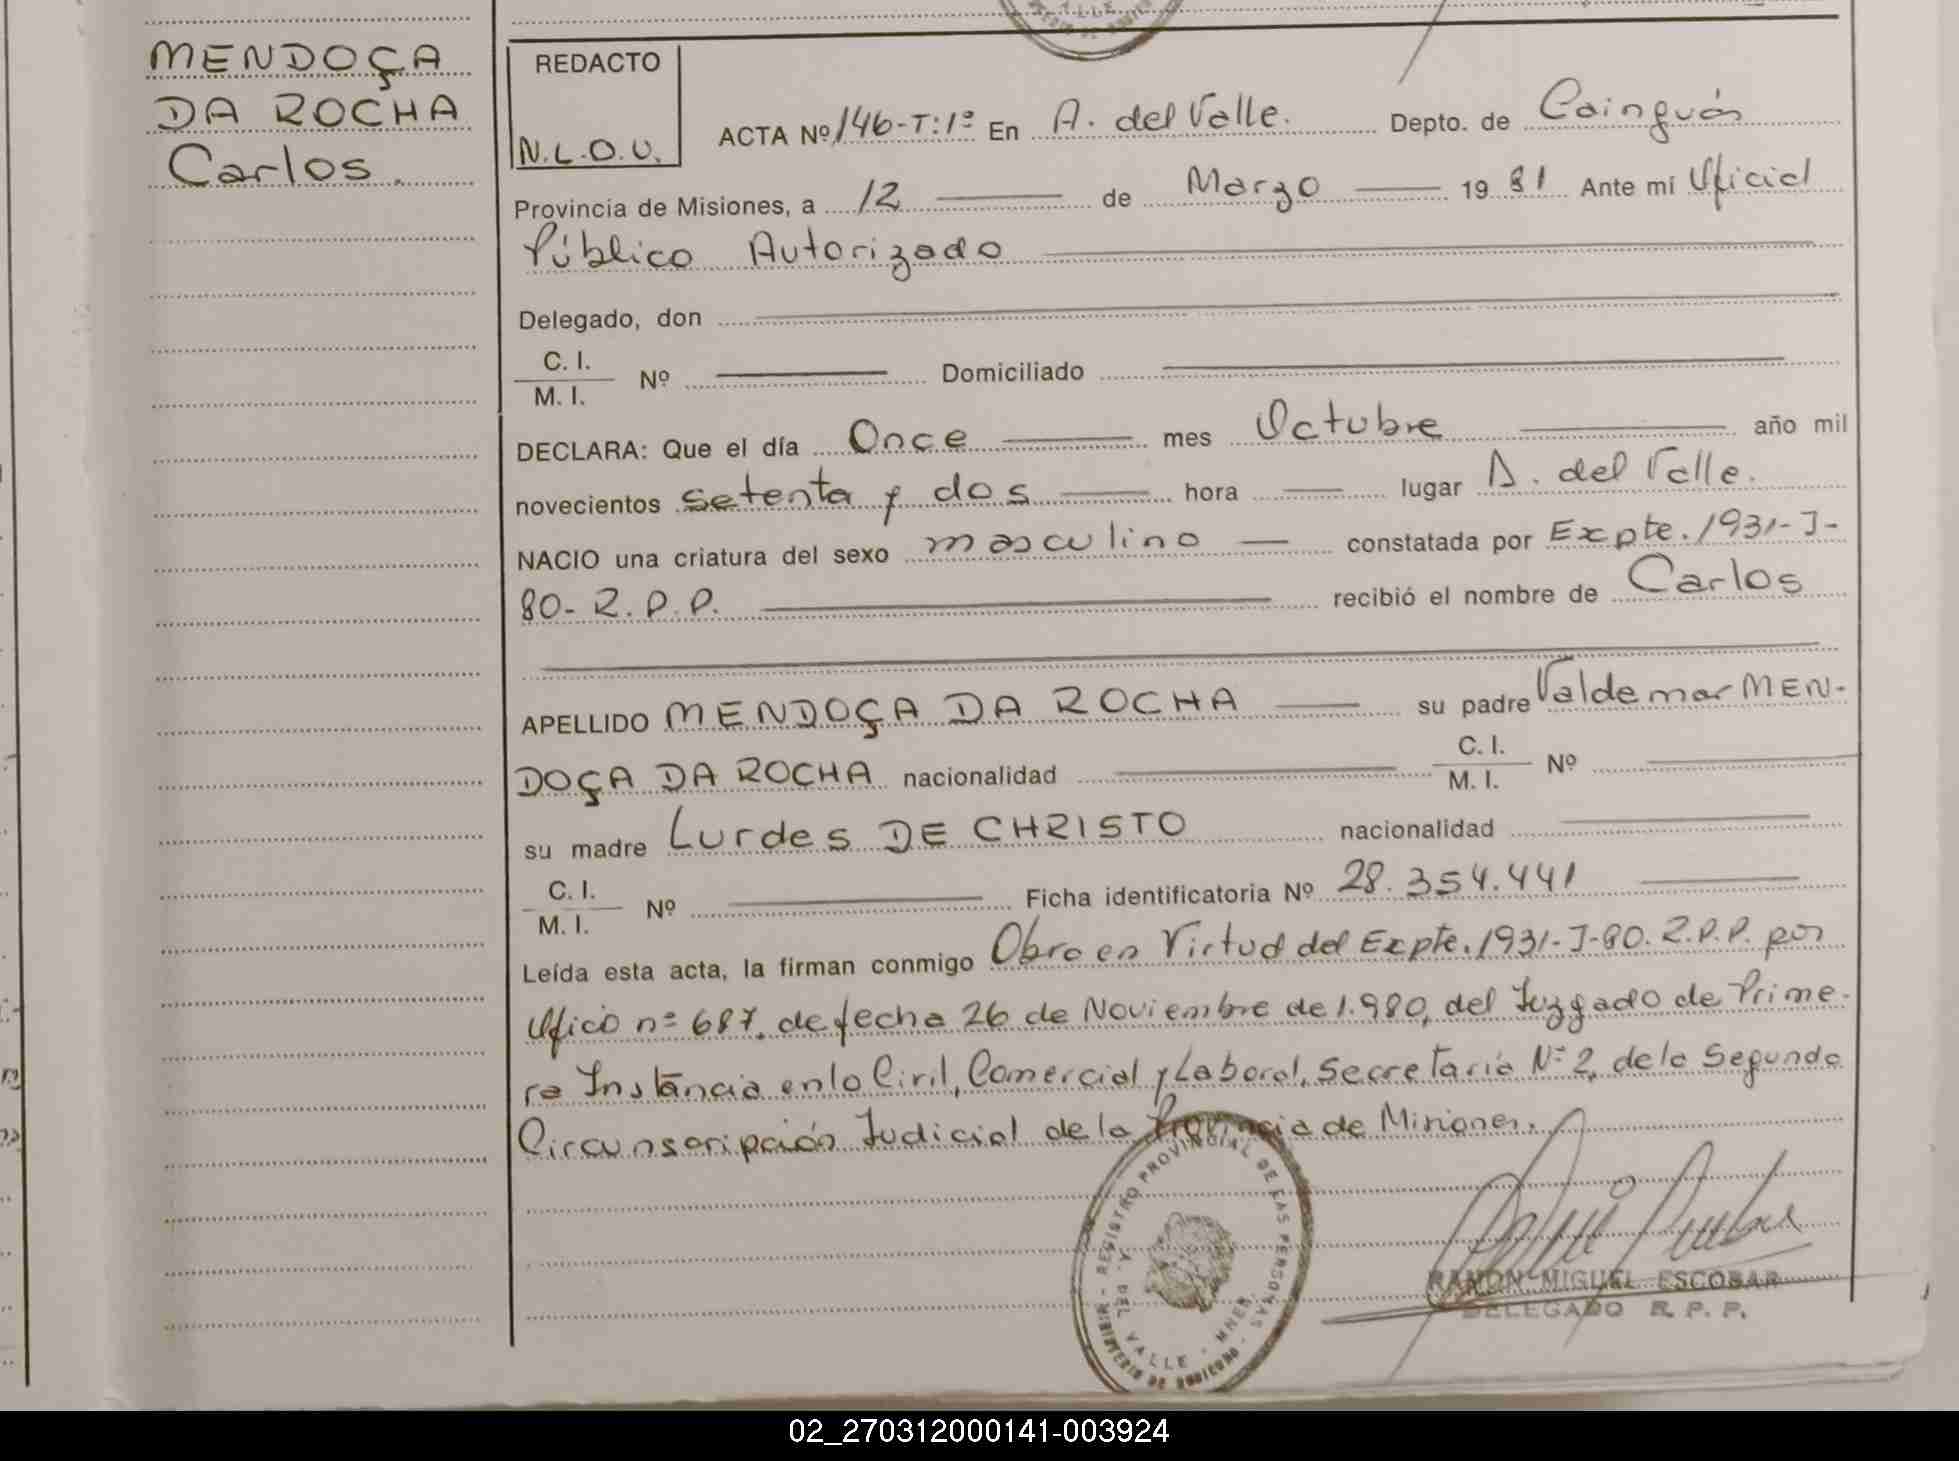 MENDOÇA
DA ROCHA
Carlos.
REDACTO
N.L.O.U.
ACTA Nº 146-T:1º En A. del Valle. Depto. de Cainguás
Provincia de Misiones, a 12 de Marzo 1981 Ante mí Oficial
Público Autorizado
Delegado, don
C. I.
M. I. Nº Domiciliado
DECLARA: Que el día Once mes Octubre año mil
novecientos setenta y dos hora lugar A. del Valle.
NACIO una criatura del sexo masculino constatada por Expte. 1931-J-
80- R.P.P. recibió el nombre de Carlos
APELLIDO MENDOÇA DA ROCHA su padre Valdemar MEN-
DOÇA DA ROCHA nacionalidad C. I. M. I. Nº
su madre Lurdes DE CHRISTO nacionalidad
C. I.
M. I. Nº Ficha identificatoria Nº 28.354.441
Leída esta acta, la firman conmigo Obra en Virtud del Expte. 1931-J-80. R.P.P. por
Oficio nº 687. de fecha 26 de Noviembre de 1.980, del Juzgado de Prime-
ra Instáncia en lo Civil, Comercial y Laboral, Secretaría Nº 2, de la Segunda
Circunscripción Judicial de la Provincia de Misiones.
REGISTRO PROVINCIAL DE LAS PERSONAS
DEL VALLE - MNES.
MINISTERIO DE GOBIERNO
RAMON MIGUEL ESCOBAR
DELEGADO R. P. P.
02_270312000141-003924